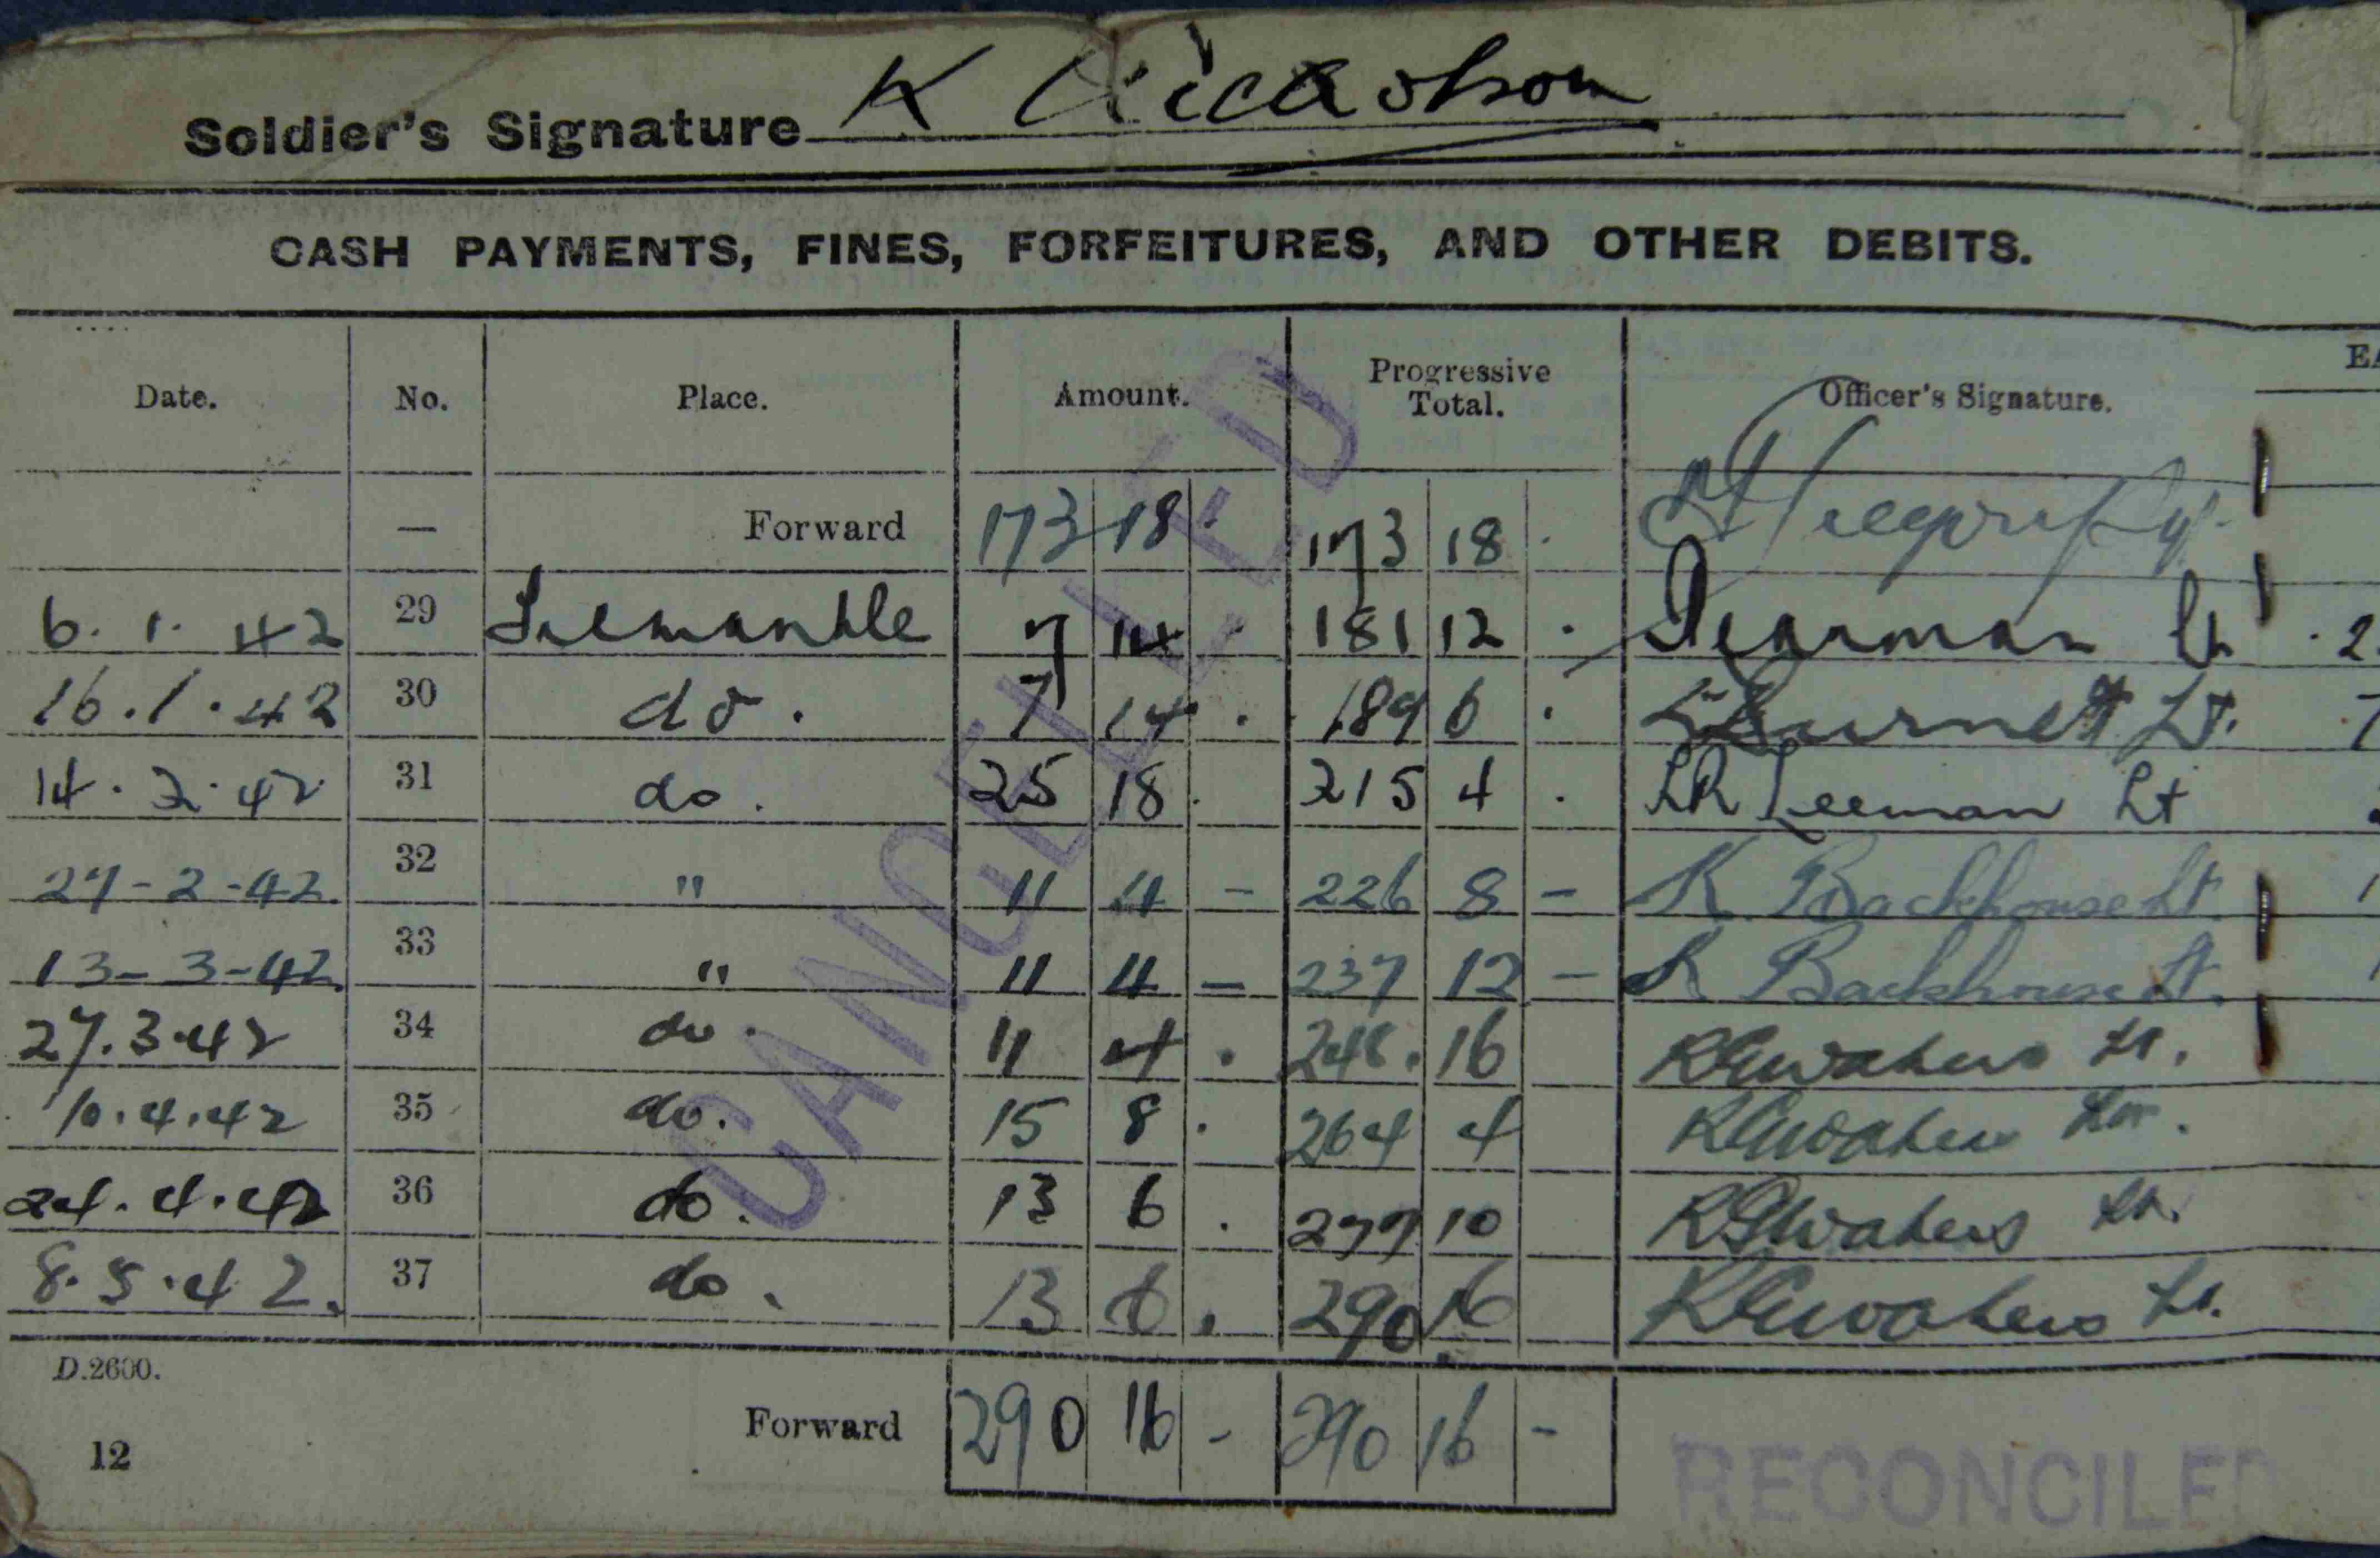 Soldier's Signature K Nicholson
CASH PAYMENTS, FINES, FORFEITURES, AND OTHER DEBITS.
Date. No. Place. Amount. Progressive Total. Officer's Signature. EA
— Forward 173 18 . 173 18 .
6. 1. 42 29 Fremantle 7 14 . 181 12 . Pearman Lt
16.1.42 30 do. 7 14 . 189 6 . Burnett Lt.
14.2.42 31 do. 25 18 . 215 4 . LR Leeman Lt
27-2-42. 32 " 11 4 - 226 8 - K Backhouse Lt.
13-3-42. 33 " 11 4 - 237 12 - K Backhouse Lt.
27.3.42 34 do. 11 4 . 248. 16 Lt.
10.4.42 35 do. 15 8 . 264 4
24.4.42 36 do. 13 6 . 277 10 Lt.
8.5.42. 37 do. 13 6 . 290 16 Lt.
D.2600.
Forward 290 16 - 290 16 -
12
CANCELLED
RECONCILED